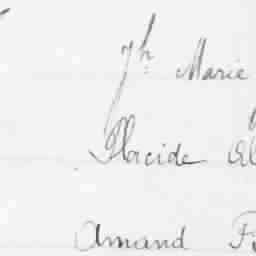 Jh. Marie
Placide Al
Amand F